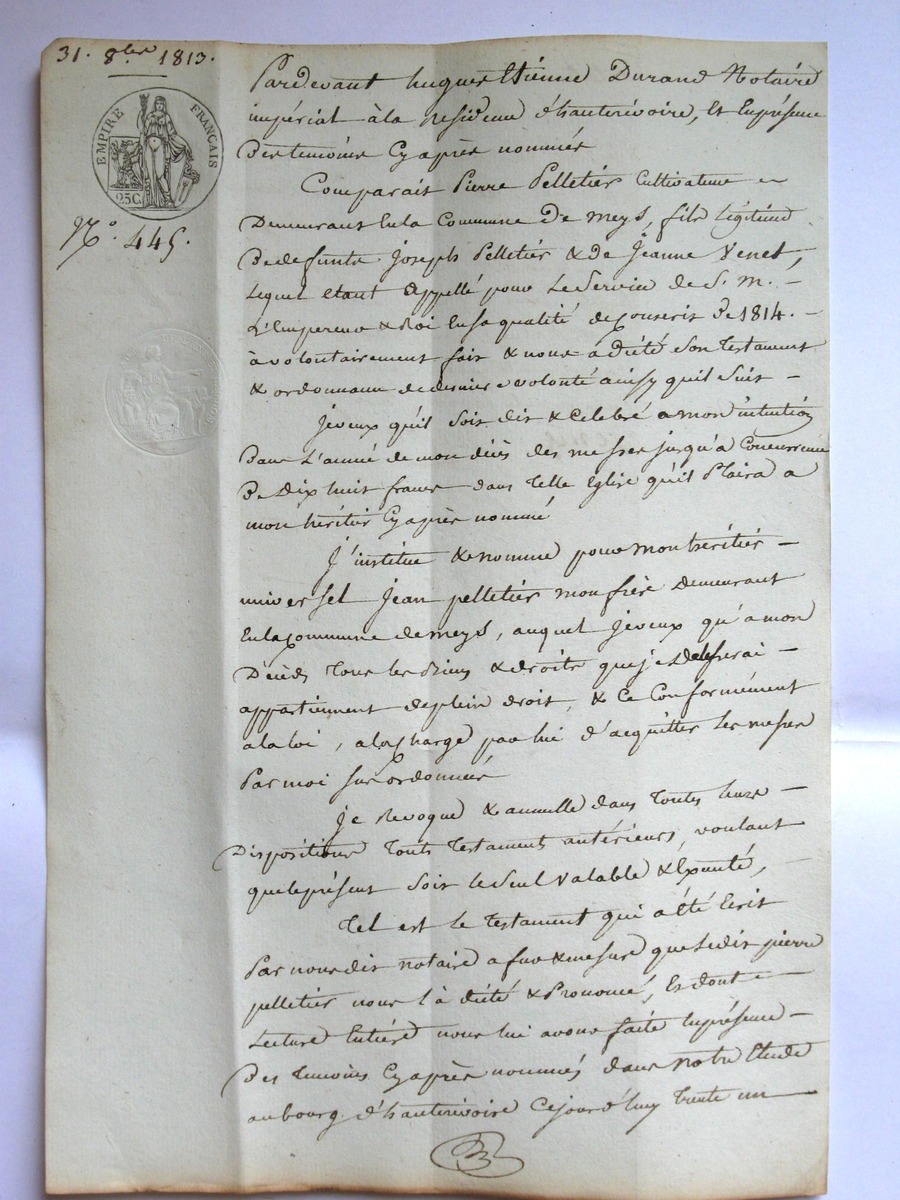 31. 8.bre 1813.
EMPIRE FRANÇAIS
25 C.
N.o 445.
Pardevant hugues Etienne Durand Notaire
impérial à la residence d'hauterivoire, et Enprésence
Des temoins Cyaprès nommés
Comparait Pierre Pelletier Cultivateur
Demeurant Enla Commune De meys, fils Légitime
De defunts joseph Pelletier & de jeanne Venet,
Lequel etant appellé pour Le Service de S. m. -
L'Empereur & Roi En sa qualité de Conscrit De 1814. -
à volontairement fait & nous a dicté Son Testament
& ordonnance de derniere volonté ainsy quil Suit -
jeveux qu'il Soit dit & Celebré a mon intention
Dans L'année de mon décès des messes jusqu'à Concurrence
De Dix huit francs dans telle Eglise qu'il Plaira a
mon héritier Cyaprès nommé
J'institue & nomme pour mon héritier -
universel jean pelletier mon frère Demeurant
En la Commune de meys, auquel jeveux qu'a mon
Décès Tous les Biens & droits que je delesserai -
appartiennent deplein droit, & Ce Conformément
a la loi, a la Charge par lui d'acquitter Les messes
Par moi sus ordonnées
je Revoque & annulle dans Toutes leurs -
Dispositions Touts Testaments antérieurs, voulant
que le présent Soit le Seul Valable & Exécuté, -
Tel est le Testament qui a été Ecrit
Par nous dit notaire a fur & mesure que Ledit pierre
pelletier nous l'à dicté & Prononcé, Et dont -
Lecture Entière nous lui avons faite Enprésence -
Des Temoins Cyaprès nommés dans Notre Etude
au bourg d'hauterivoire Cejourd'huy Trente un -